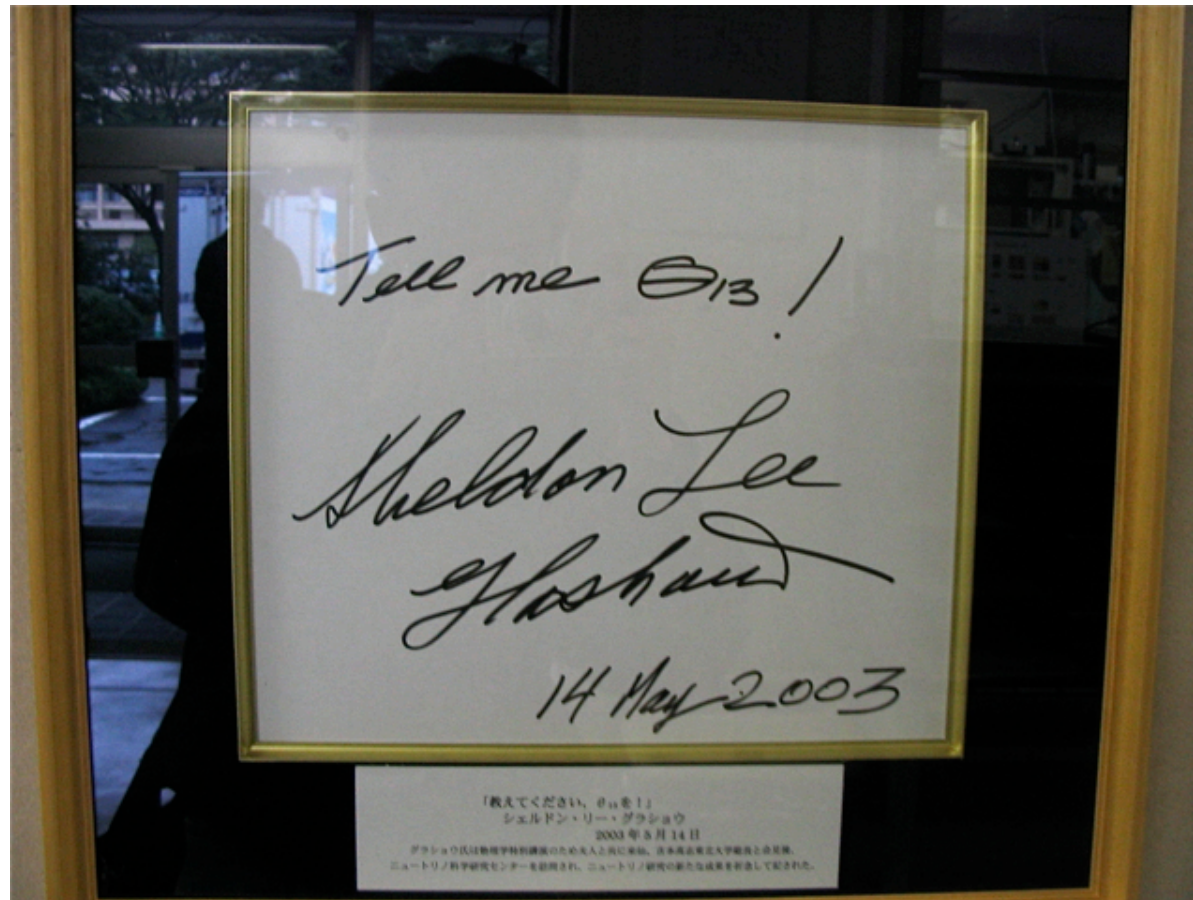 Tell me Θ13!
Sheldon Lee
Glashow
14 May 2003
「教えてください、θ₁₃を!」
シェルドン・リー・グラショウ
2003年5月14日
グラショウ氏は物理学特別講演のため夫人と共に来仙、吉本高志東北大学総長と会見後、
ニュートリノ科学研究センターを訪問され、ニュートリノ研究の新たな成果を祈念して記された。